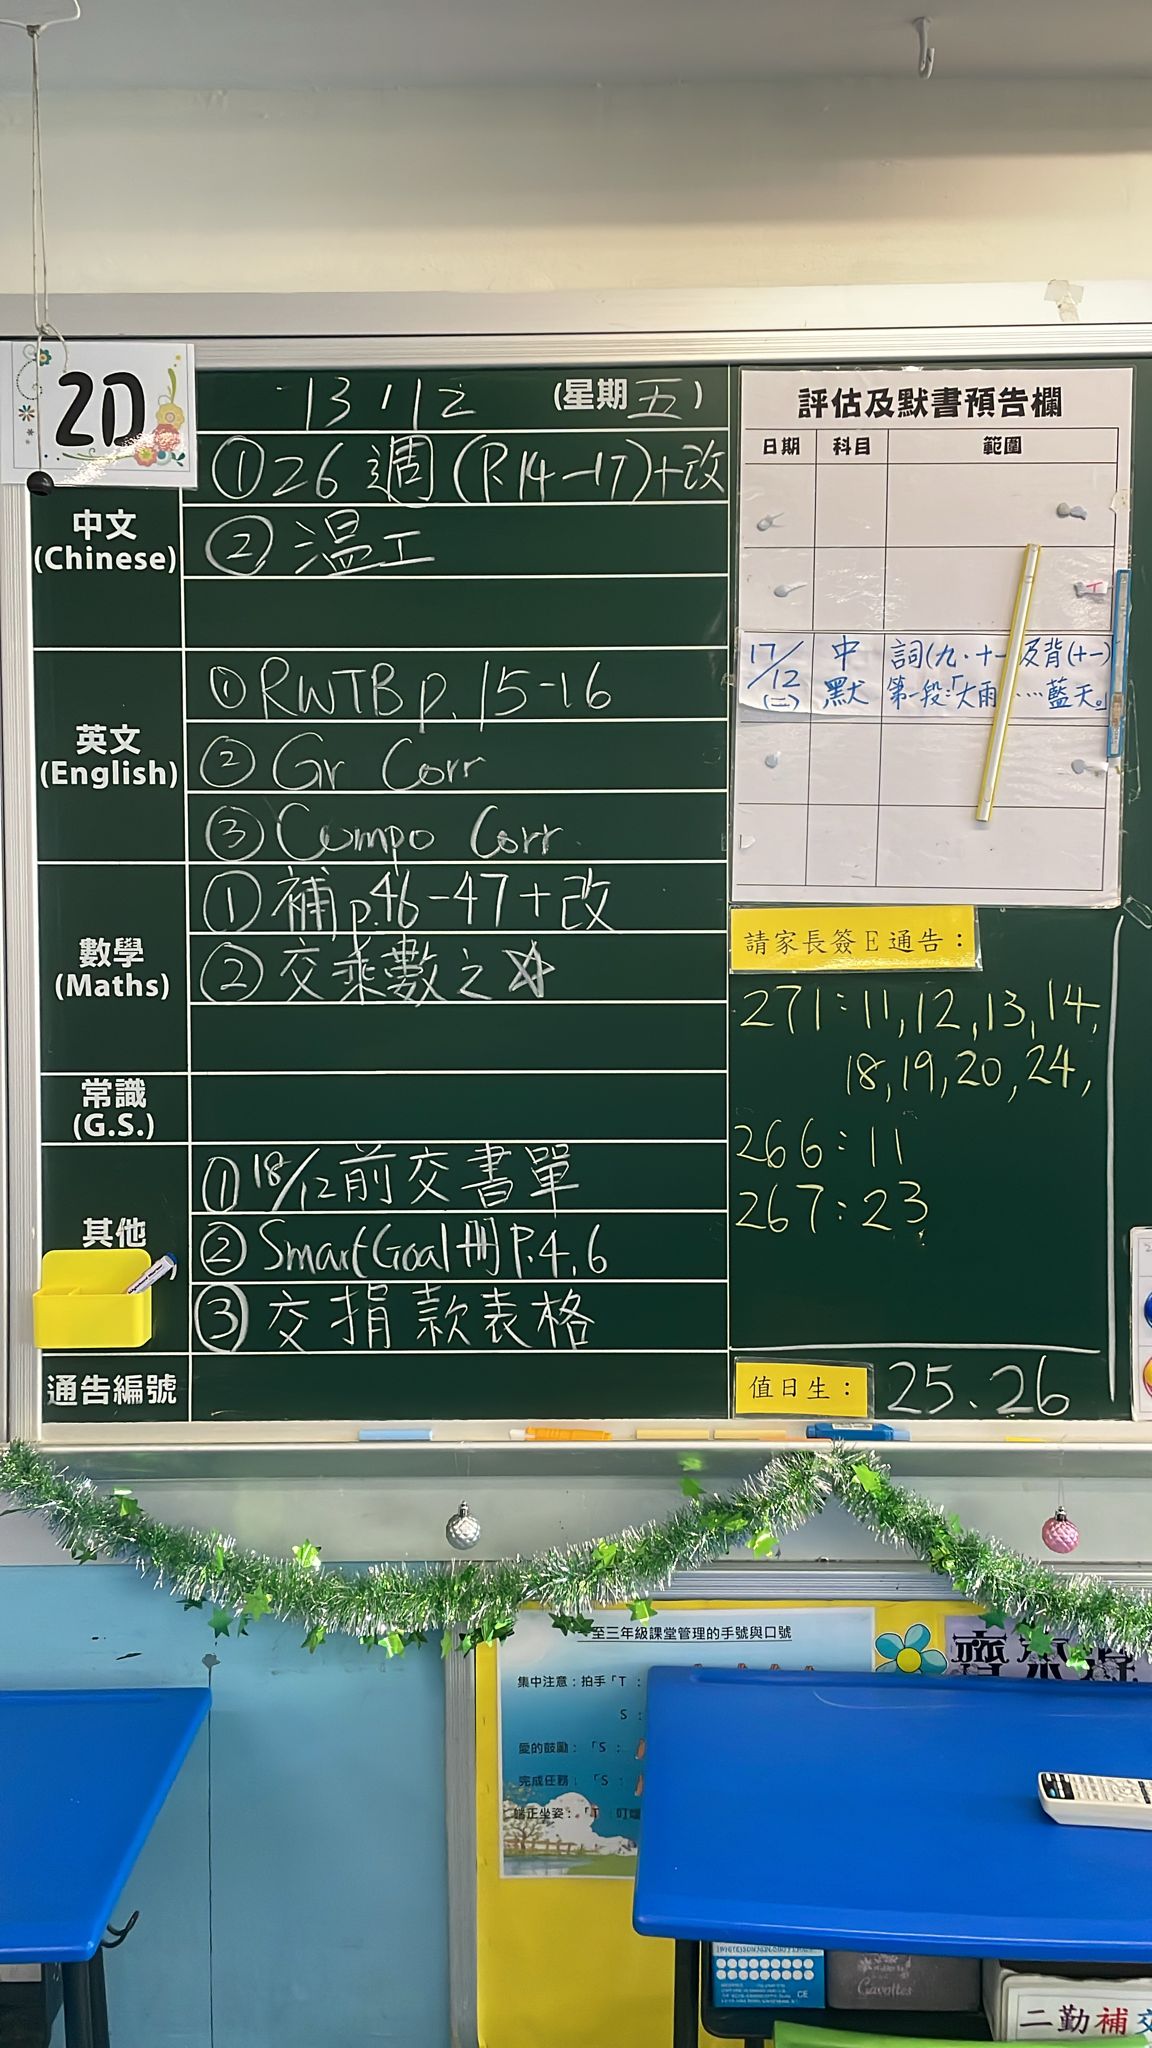 2D
13/12 (星期五)
中文
(Chinese)
①26週(P.14-17)+改
②溫工
英文
(English)
①RWTB p.15-16
②Gr Corr
③Compo Corr.
數學
(Maths)
①補p.46-47+改
②交乘數之☆
常識
(G.S.)
其他
①18/12前交書單
②SmartGoal冊P.4,6
③交捐款表格
通告編號
評估及默書預告欄
日期 科目 範圍
17/12(二) 中默 詞(九、十一 及背(十一)
第一段:「大雨 ……藍天。」
請家長簽E通告:
271:11,12,13,14,
18,19,20,24,
266:11
267:23
值日生: 25.26
至三年級課堂管理的手號與口號
集中注意:拍手「T:
S:
愛的鼓勵:「S:
完成任務:「S:
端正坐姿:「T:叮噹
Gavottes
CE
二勤補交